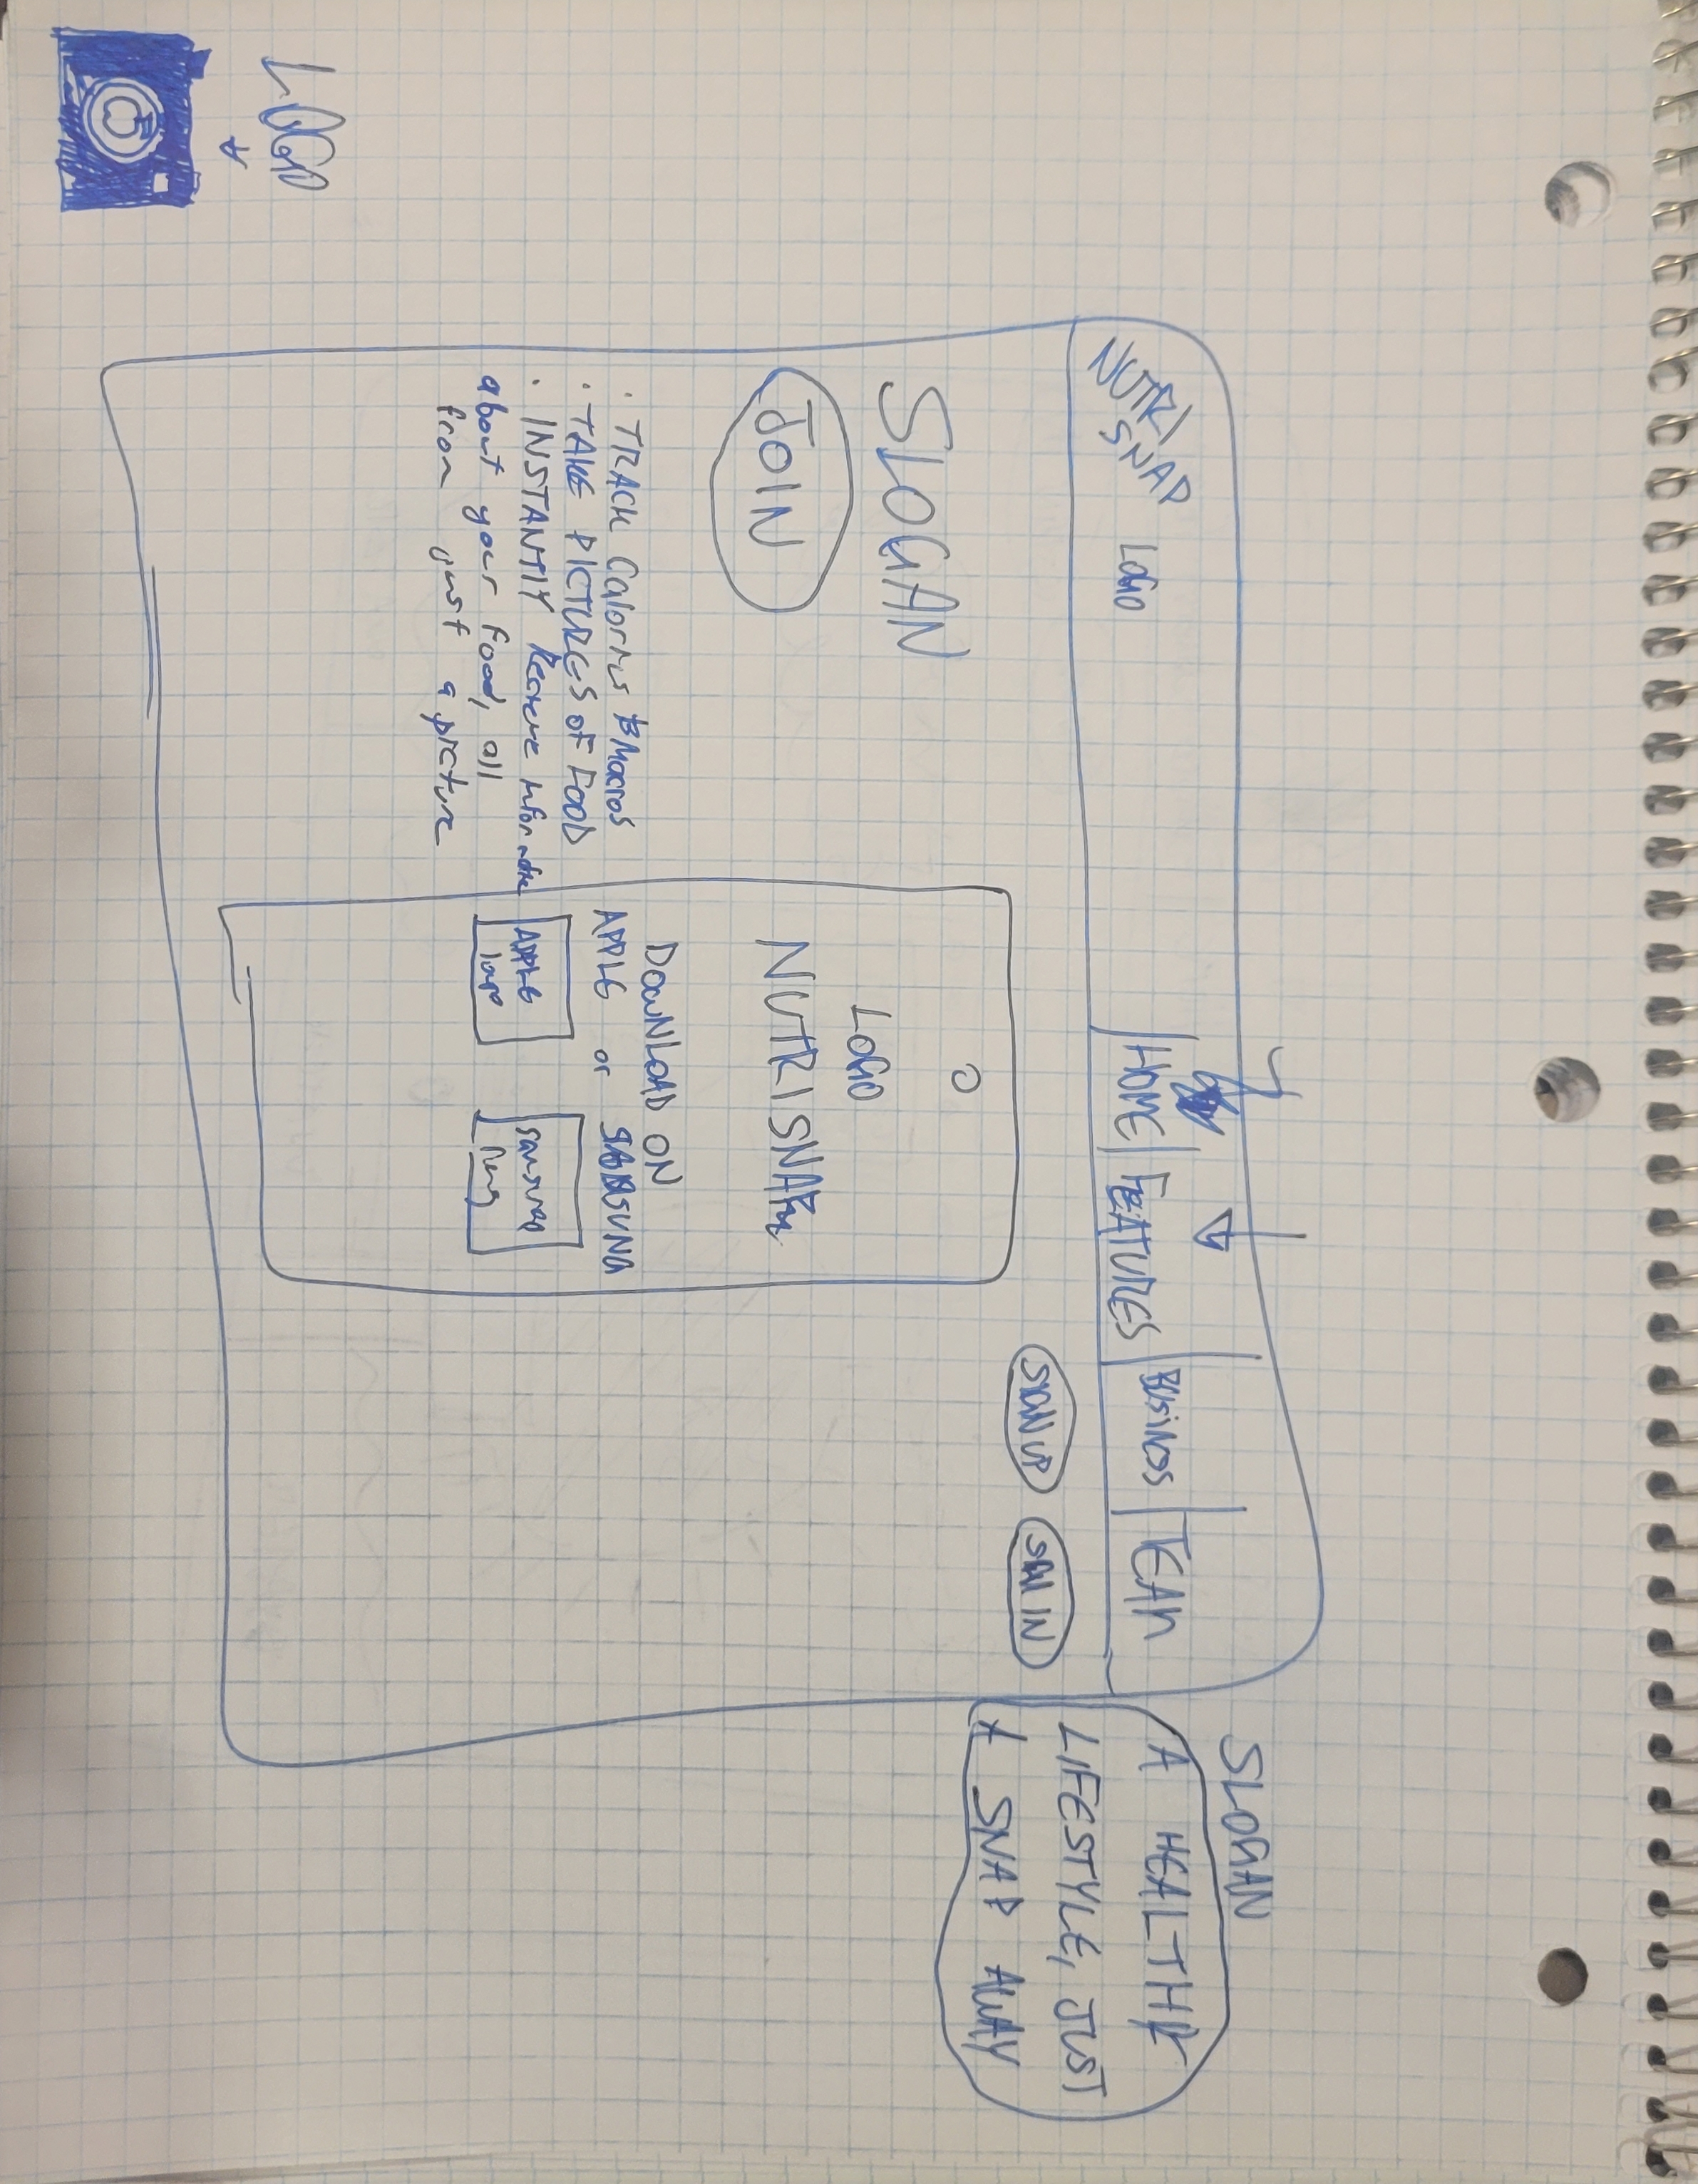 LOGO
NUTRI
SNAP
LOGO
HOME
FEATURES
BUSINESS
TEAM
SIGN UP
SIGN IN
SLOGAN
JOIN
· TRACK Calories & Macros
· TAKE PICTURES OF FOOD
· INSTANTLY Receive information
about your food, all
from just a picture
LOGO
NUTRISNAP
DOWNLOAD ON
APPLE or SAMSUNG
APPLE
logo
Samsung
SLOGAN
A HEALTHY
LIFESTYLE, JUST
A SNAP AWAY